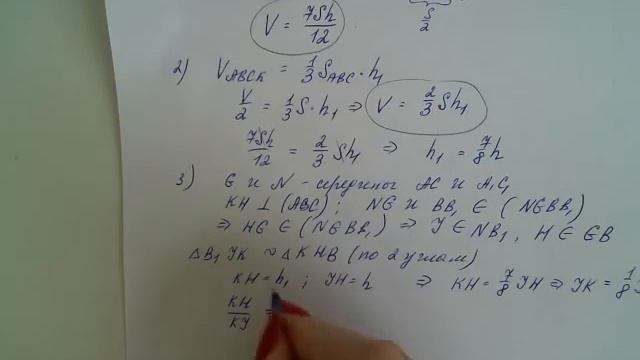 V = 7Sh/12
S/2
2) V_ABCK = 1/3 S_ABC · h₁
V/2 = 1/3 S · h₁ ⇒ V = 2/3 Sh₁
7Sh/12 = 2/3 Sh₁ ⇒ h₁ = 7/8 h
3) G и N - середины AC и A₁C₁
KH ⊥ (ABC) ; NG и BB₁ ∈ (NGBB₁)
⇒ HG ∈ (NGBB₁) ⇒ J ∈ NB₁ , H ∈ GB
△B₁JK ~ △KHB (по 2 углам)
KH = h₁ ; JH = h ⇒ KH = 7/8 JH ⇒ JK = 1/8
KH/KJ =